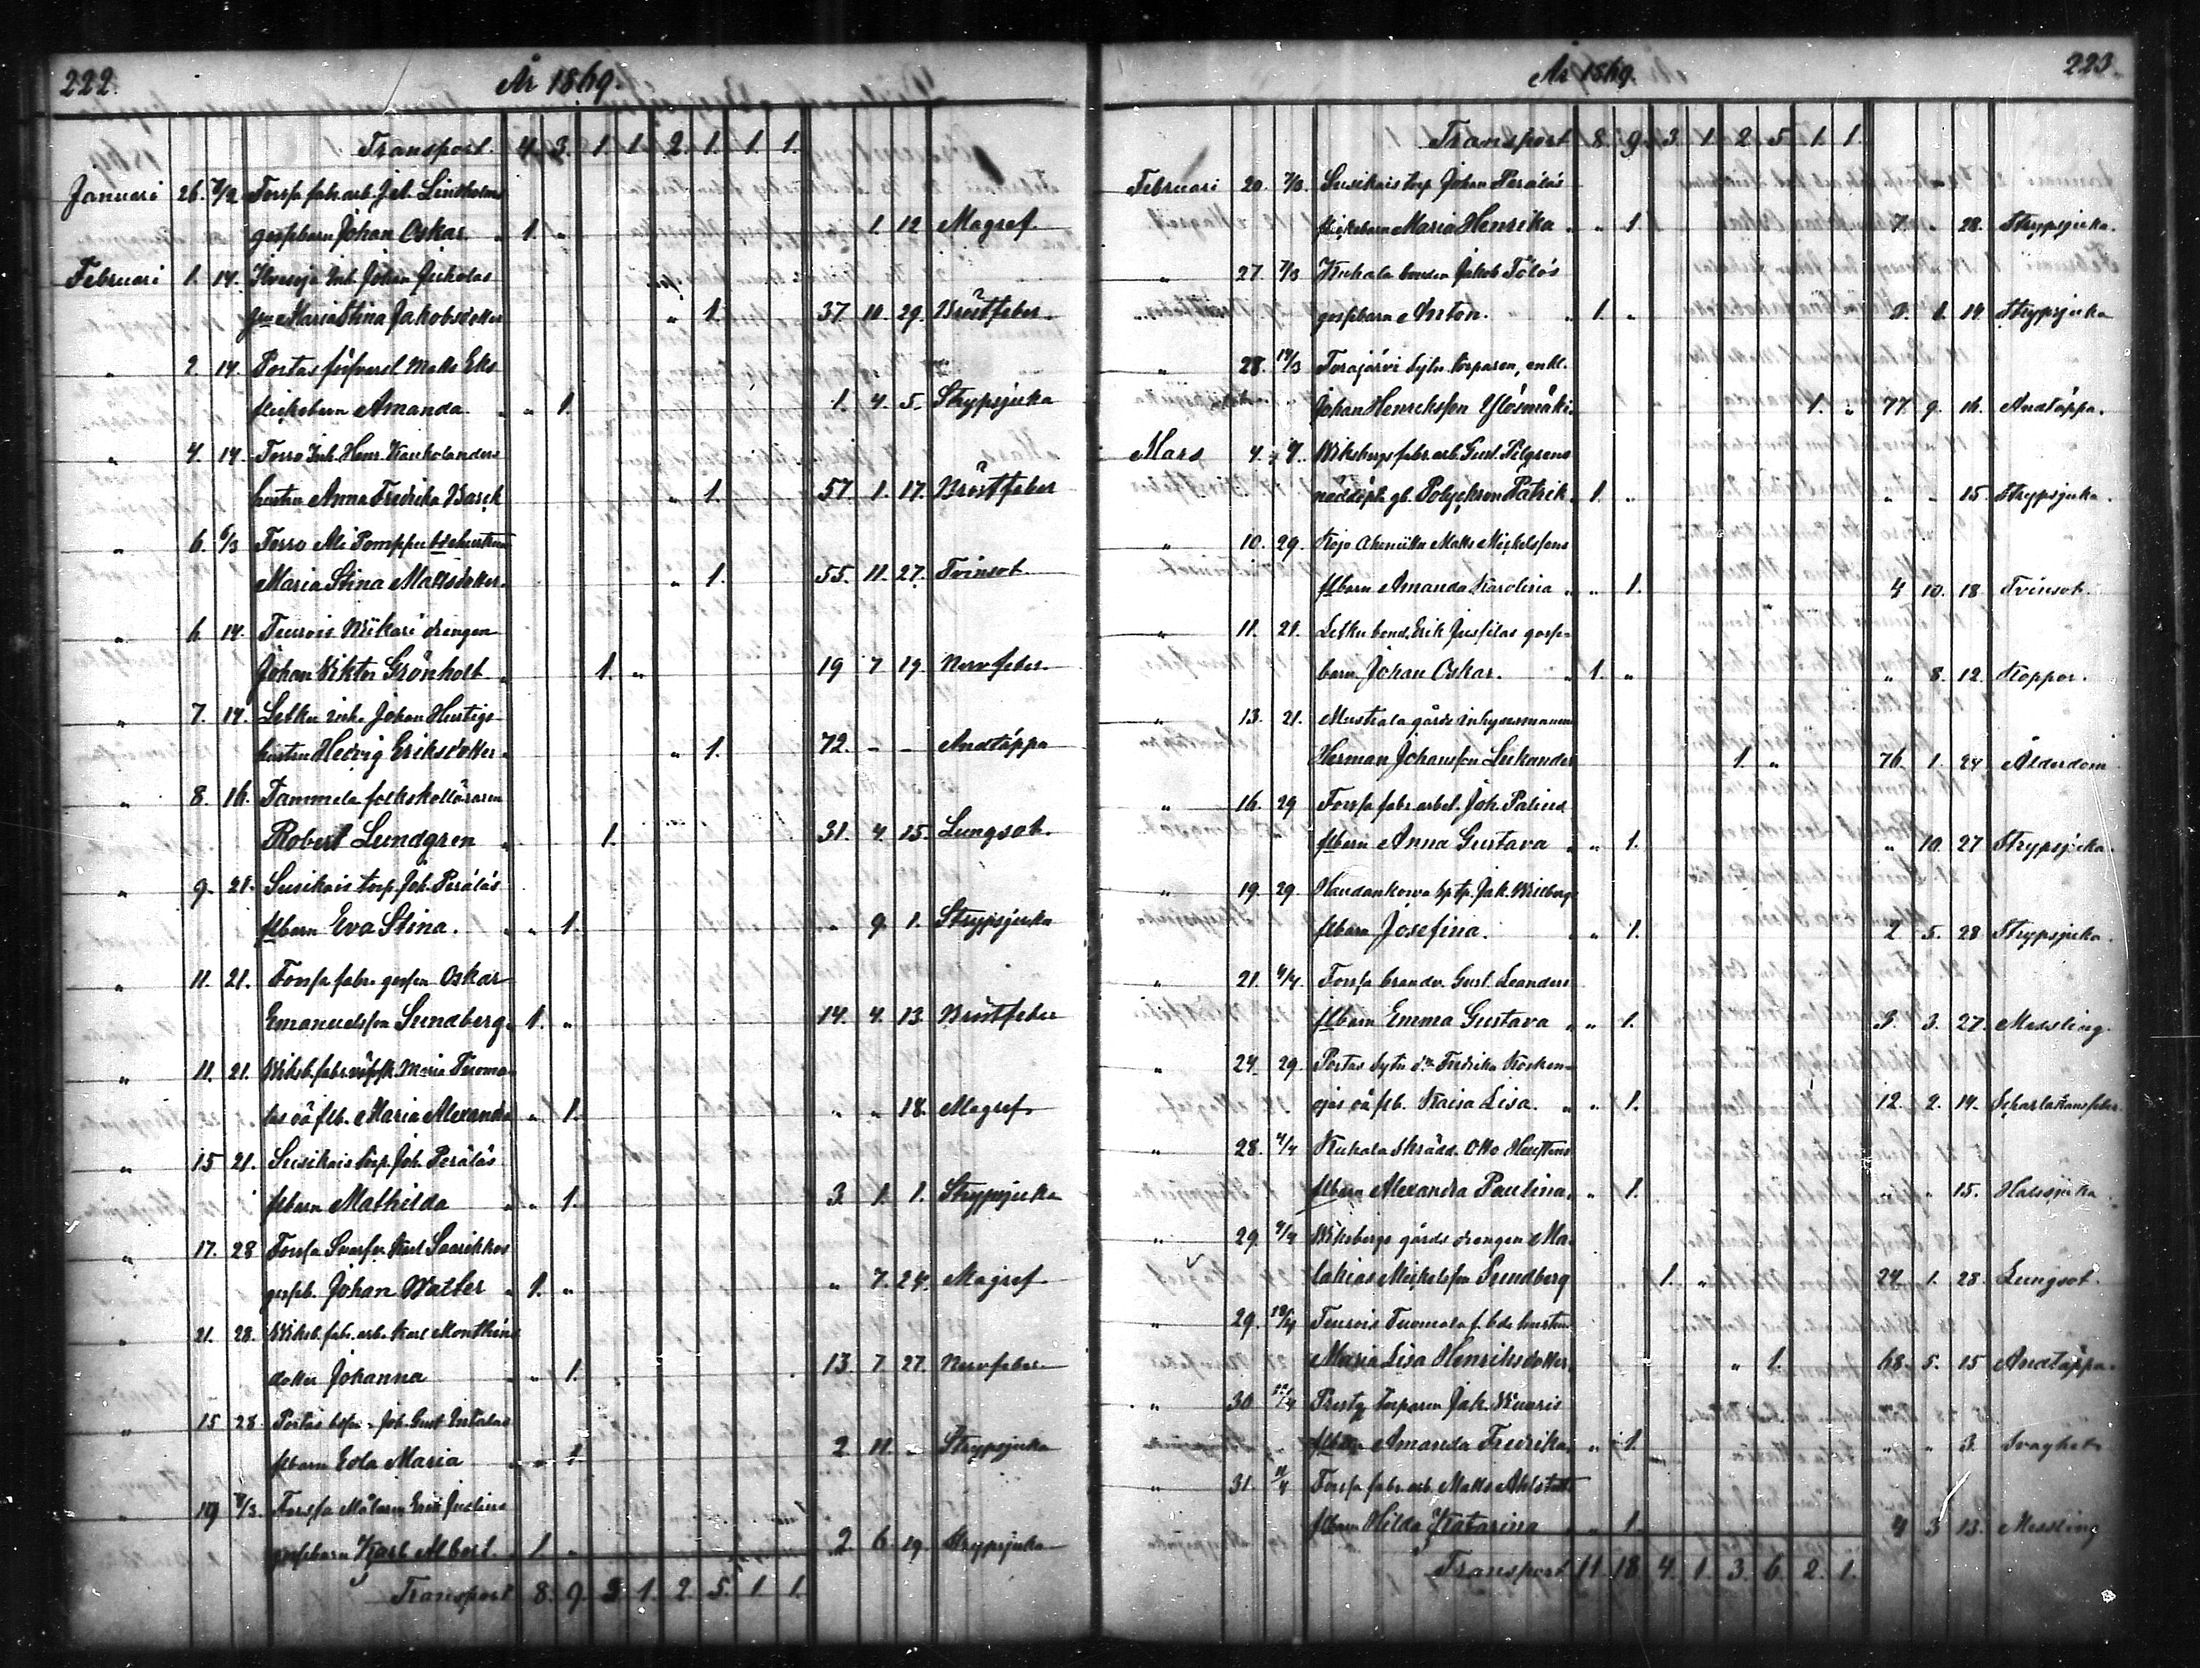 222.
År 1869.
Transport. 4. 3. 1. 1. 2. 1. 1. 1.
Januari 26. 7/2 Forssa fabr. arb. Joh. Lindholms
gossebarn Johan Oskar „ 1. „ 1 12 Magref.
Februari 1. 14. Inh. Johan Jukolas
Maria Stina Jakobsdotter „ 1. 37. 11. 29. Bröstfeber.
„ 2. 14. Portas Matts Eks
flickebarn Amanda „ „ 1. 1. 4. 5. Strypsjuka
„ 4. 14. Torro Inh. Henr. Kaukolanders
hustru Anna Fredrika Barck „ 1. 57 1. 17. Bröstfeber
„ 6. 6/3 Torro Ali Pomppu bds hustrun
Maria Stina Mattsdotter „ 1. 55. 11. 27. Tvinsot.
„ 6 14. Teuroie Wikari drengen
Johan Viktor Grönholt „ 1. „ 19 7 19. Nervfeber
„ 7. 14. Letku inh. Johan Hurtigs
hustru Hedvig Eriksdotter „ „ 1. 72. – – Andtäppa
„ 8. 16. Tammela folkskolläraren
Robert Lundgren „ 1. 31. 4. 15. Lungsot.
„ 9. 21. Susikais torp. Joh. Perälä's
flbarn Eva Stina. „ „ 1. „ 9. 1. Strypsjuka
„ 11. 21. Forssa fabr. gossen Oskar
Emanuelsson Sundberg 1. „ 14. 4. 13. Bröstfeber
„ 11. 21. Wiksb. fabr. Maria Tuoma-
las oä flb. Maria Alexandra „ 1. „ „ 18. Magref.
„ 15 21. Susikais torp. Joh. Perälä's
flbarn Mathilda „ „ 1. 3 1. 1. Strypsjuka
„ 17. 28 Forssa Svarfv. Karl Saarikkos
gosseb. Johan Walter „ 1. „ „ 7. 24. Magref.
„ 21. 28. Wiksb. fabr. arb. Karl Monthéns
dotter Johanna „ „ 1. 13. 7. 27. Nervfeber
„ 15 28. Portas Joh. Gust.
flbarn Eola Maria „ „ 1 2 11. „ Strypsjuka
„ 19 Forssa Målaren Erik
gossebarn Karl Albert. 1. „ 2 6. 19. Strypsjuka
Transport 8. 9. 3. 1. 2. 5. 1. 1.
År 1869.
223.
Transport 8. 9. 3. 1. 2. 5. 1. 1.
Februari 20. 7/3. Susikais torp. Johan Perälä's
flickebarn Maria Henrika „ „ 1. 7. „ 28. Strypsjuka.
„ 27. 7/3 Kuhala bonden Jakob Tölö's
gossebarn Anton. „ 1. „ 1. 14 Strypsjuka
„ 28. 14/3 Torajärvi Sytn. torparen, enkl.
Johan Henriksson Ylösmäki 1. „ 77 9. 16. Andtäppa.
Mars 4. Wiksbergs fabr. arb. Gust. Pilgrens
nöddöpt gb. Polykron Patrik. 1. „ „ „ 15. Strypsjuka.
„ 10. 29. Kojo Matts Mickelssons
flbarn Amanda Karolina „ „ 1. 4 10. 18 Tvinsot.
„ 11. 21. Letku bond. Erik Jussilas gosse-
barn Johan Oskar. „ 1. „ „ 8. 12. Koppor.
„ 13. 21. Mustiala gårds inhysesmannen
Herman Johansson Leikander 1. „ 76. 1. 24 Ålderdom
„ 16. 29 Forssa fabr. arbet. Joh.
flbarn Anna Gustava „ „ 1. „ 10. 27 Strypsjuka.
„ 19. 29 Haudankorva Jak.
flbarn Josefina. „ „ 1. 2 5. 28 Strypsjuka.
„ 21. 4/4. Forssa brandv. Gust. Leanders
flbarn Emma Gustava „ „ 1. 3. 3. 27. Messling.
„ 24. 29. Portas Sytn. Fredrika Kosken-
ojas oä flb. Kaisa Lisa. „ „ 1. 12. 2. 14. Scharlakansfeber
„ 28. 4/4 Kuhala Skrädd. Otto
flbarn Alexandra Paulina „ 1. „ „ 15. Halssjuka.
„ 29. 4/4 Wiksbergs gårds drengen Ma-
lakias Mickelsson Sundberg „ 1. „ 24. 1. 28 Lungsot.
„ 29. Teuroie Tuomola f. bds hustrun
Maria Lisa Henriksdotter „ 1. 68. 5. 15 Andtäppa.
„ 30. Prestg. torparen Jak.
flbarn Amanda Fredrika „ „ 1. „ „ 3. Svaghet
„ 31. 11/4 Forssa fabr. arb. Matts Ahlstedts
flbarn Hilda Katarina „ „ 1. 4 3 13. Messling
Transport 11. 18. 4. 1. 3. 6. 2. 1.